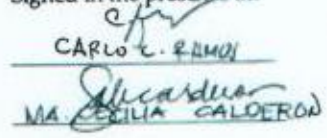 Signed in the presence of:
CARLO C. RAMOS
MA. CECILIA CALDERON